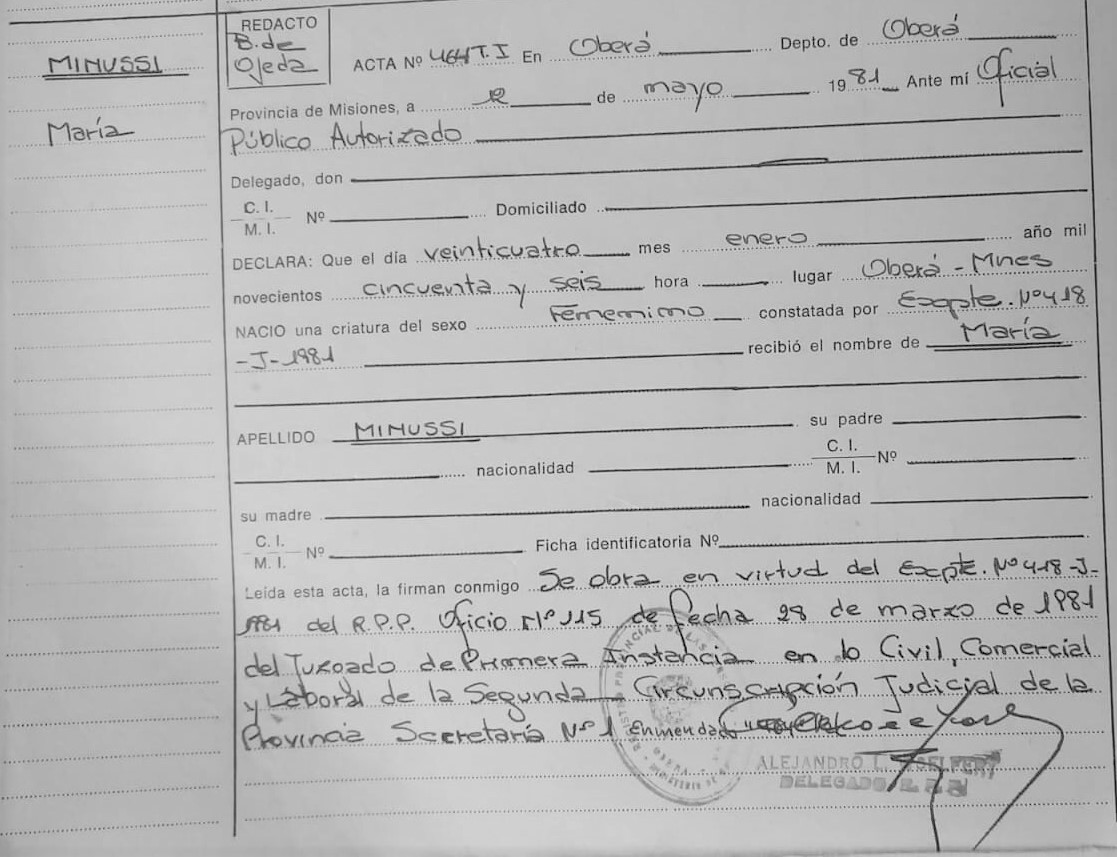 MINUSSI
María
REDACTO
B. de
Ojeda
ACTA Nº 464 T. I En Oberá Depto. de Oberá
Provincia de Misiones, a 12 de mayo 1981 Ante mí Oficial
Público Autorizado
Delegado, don
C. I.
M. I. Nº Domiciliado
DECLARA: Que el día veinticuatro mes enero año mil
novecientos cincuenta y seis hora lugar Oberá - Mnes
NACIO una criatura del sexo Femenino constatada por Excpte. Nº 418
-J-1981 recibió el nombre de María
APELLIDO MINUSSI su padre
nacionalidad C. I.
M. I. Nº
su madre nacionalidad
C. I.
M. I. Nº Ficha identificatoria Nº
Leída esta acta, la firman conmigo Se obra en virtud del Excpte. Nº 418-J-
1981 del R.P.P. Oficio Nº 115 de fecha 28 de marzo de 1981
del Juzgado de Primera Instancia en lo Civil, Comercial
y Laboral de la Segunda Circunscripción Judicial de la
Provincia Secretaría Nº 1 Enmendado
ALEJANDRO L.
DELEGADO